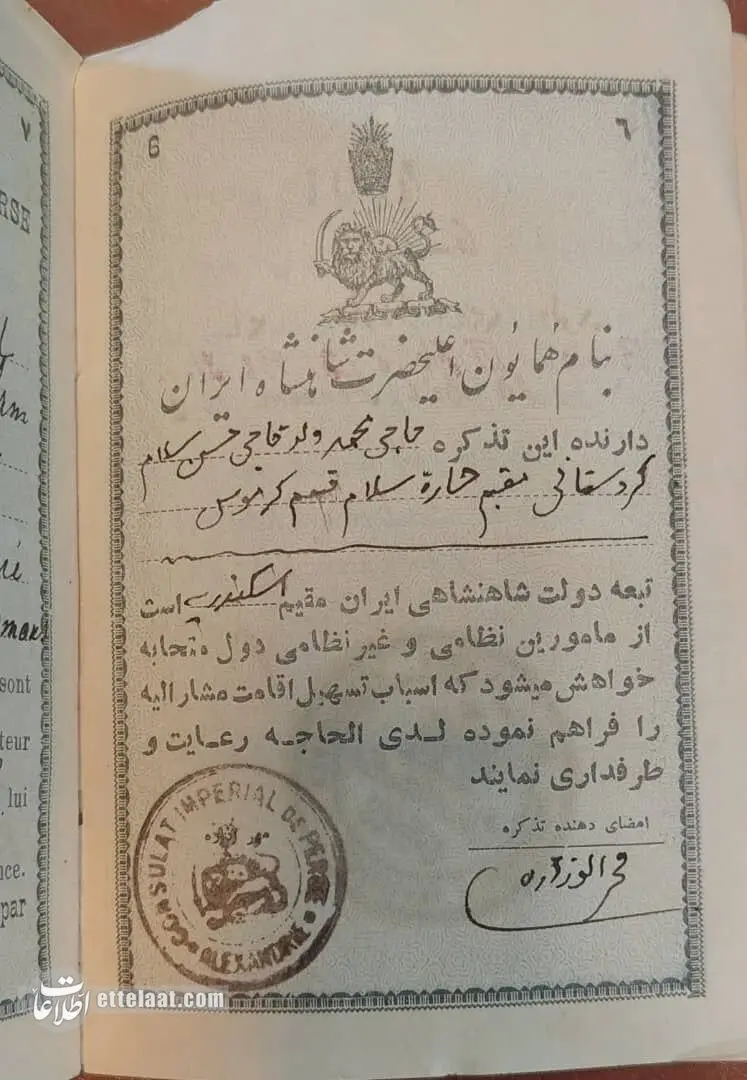 ٧
RSE
sont
teur
lui
nce.
par
6 ٦
بنام همایون اعلیحضرت شاهنشاه ایران
دارنده این تذکره حاجی محمد ولد حاجی حسن سلام
کردستانی مقیم حارة سلام قسم کرموس
تبعه دولت شاهنشاهی ایران مقیم اسکندریه است
از مامورین نظامی و غیر نظامی دول متحابه
خواهش میشود که اسباب تسهیل اقامت مشارالیه
را فراهم نموده لدی الحاجه رعایت و
طرفداری نمایند
امضای دهنده تذکره
فخر الوزاره
CONSULAT IMPERIAL DE PERSE
مهر
ALEXANDRIE
اطلاعات ettelaat.com